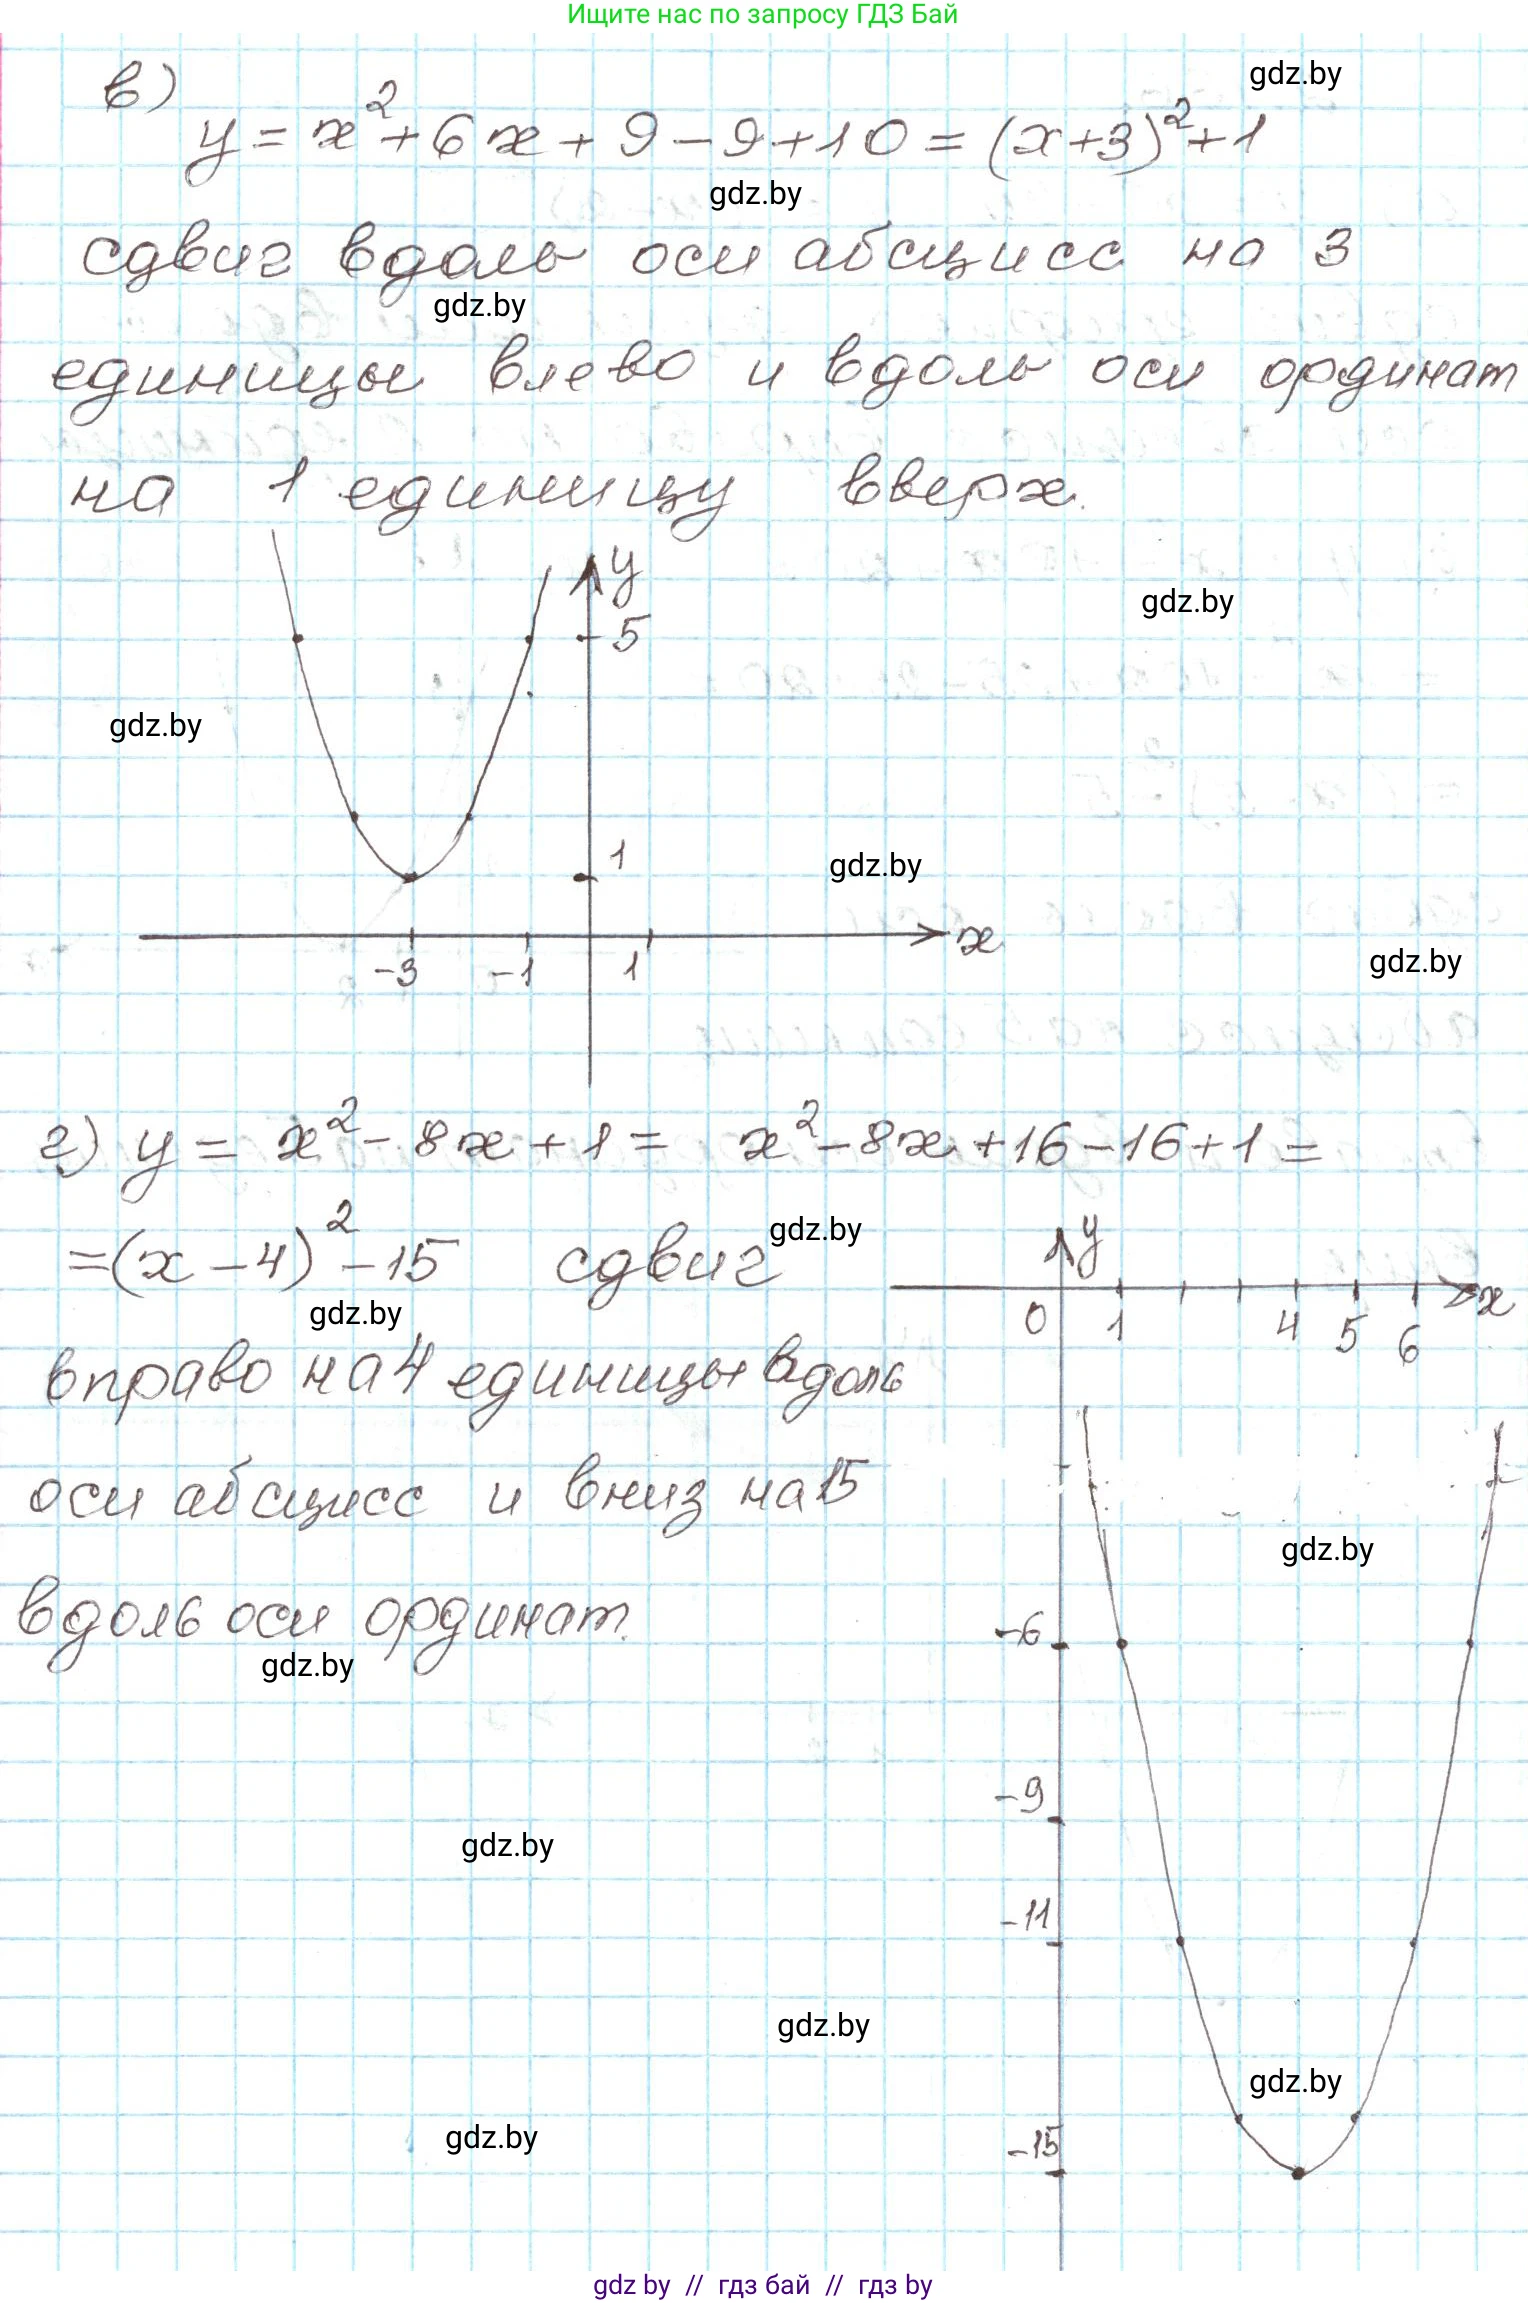 Ищите нас по запросу ГДЗ Бай
gdz.by
в)
y = x² + 6x + 9 - 9 + 10 = (x+3)² + 1
gdz.by
сдвиг вдоль оси абсцисс на 3
gdz.by
единицы влево и вдоль оси ординат
на 1 единицу вверх.
y
5
gdz.by
gdz.by
1
gdz.by
x
-3 -1 1
gdz.by
г) y = x² - 8x + 1 = x² - 8x + 16 - 16 + 1 =
= (x - 4)² - 15 сдвиг
gdz.by
y
gdz.by
x
0 1 4 5 6
вправо на 4 единицы вдоль
оси абсцисс и вниз на 15
gdz.by
вдоль оси ординат.
-6
gdz.by
-9
gdz.by
-11
gdz.by
gdz.by
gdz.by
-15
gdz by // гдз бай // гдз by